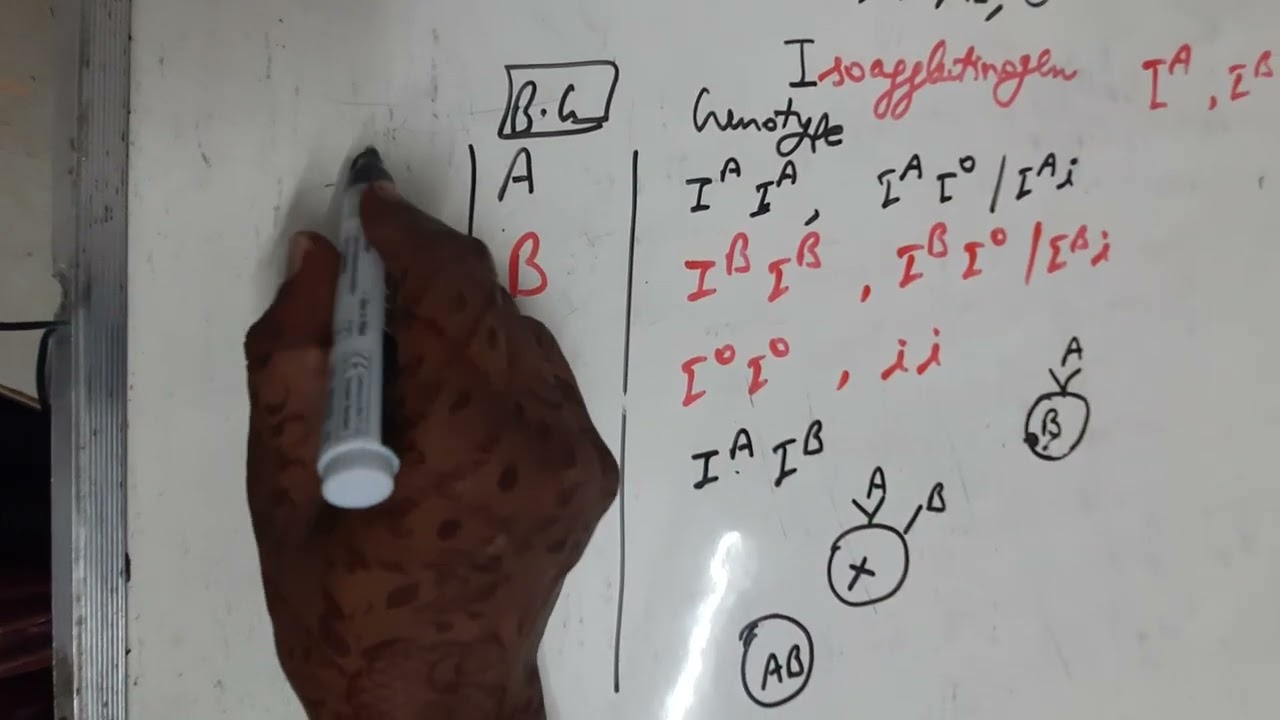 Isoagglutinogen I^A, I^B
B.G Genotype
A I^A I^A, I^A I^O / I^A i
B I^B I^B, I^B I^O / I^B i
I^O I^O, ii
A
B
I^A I^B
A B
X
AB